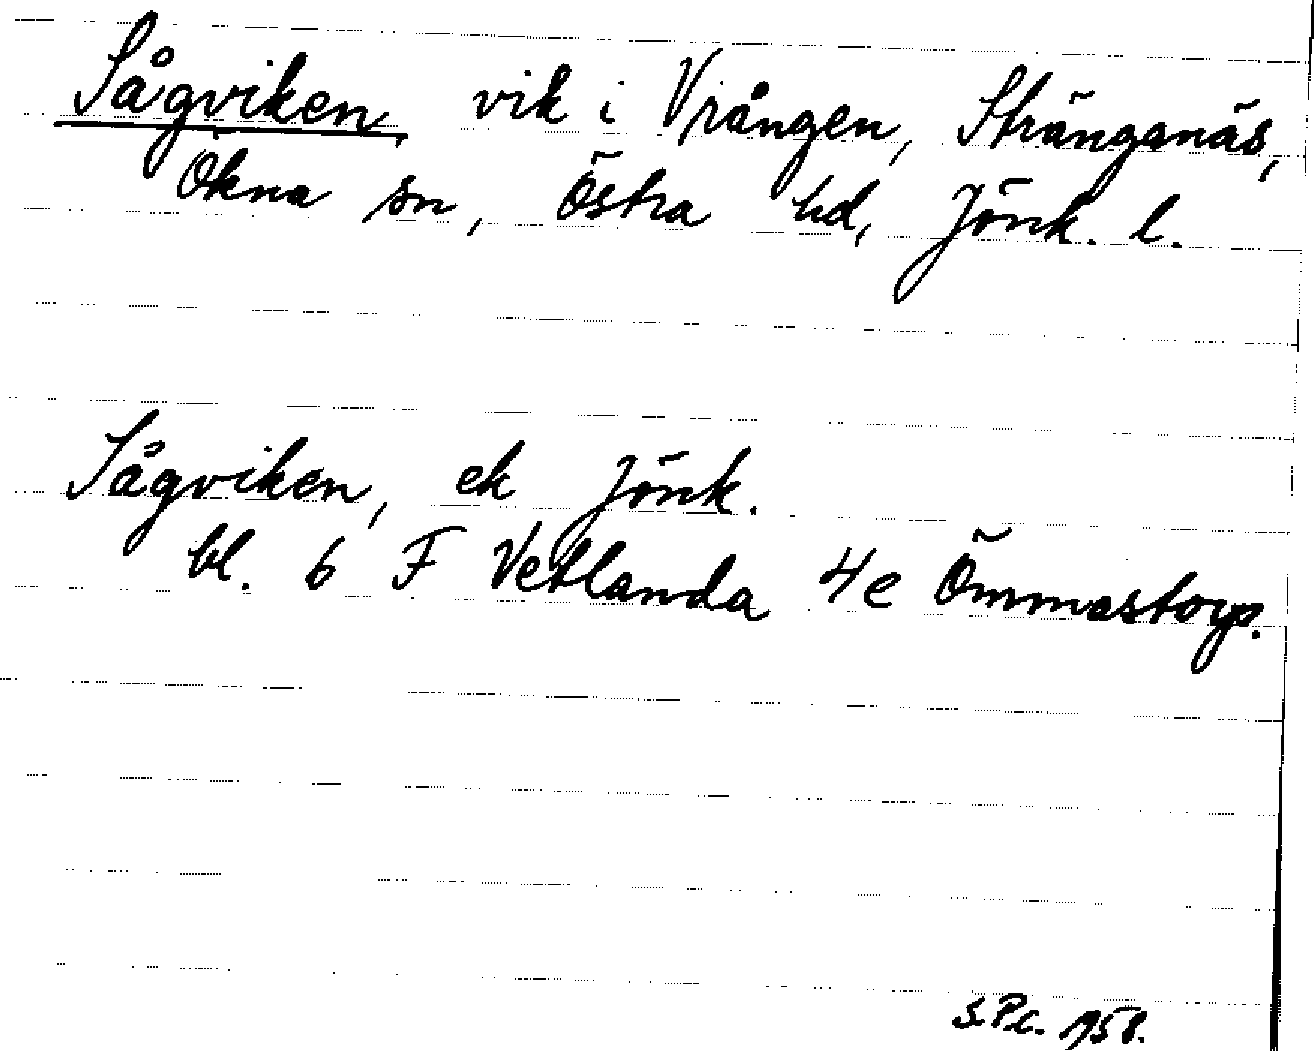 Sågviken, vik i Vrången, Stränganäs,
Ökna sn, Östra hd, Jönk. l.
Sågviken, ek Jönk.
bl. 6 F Vetlanda 4e Ömmastorp.
1958.